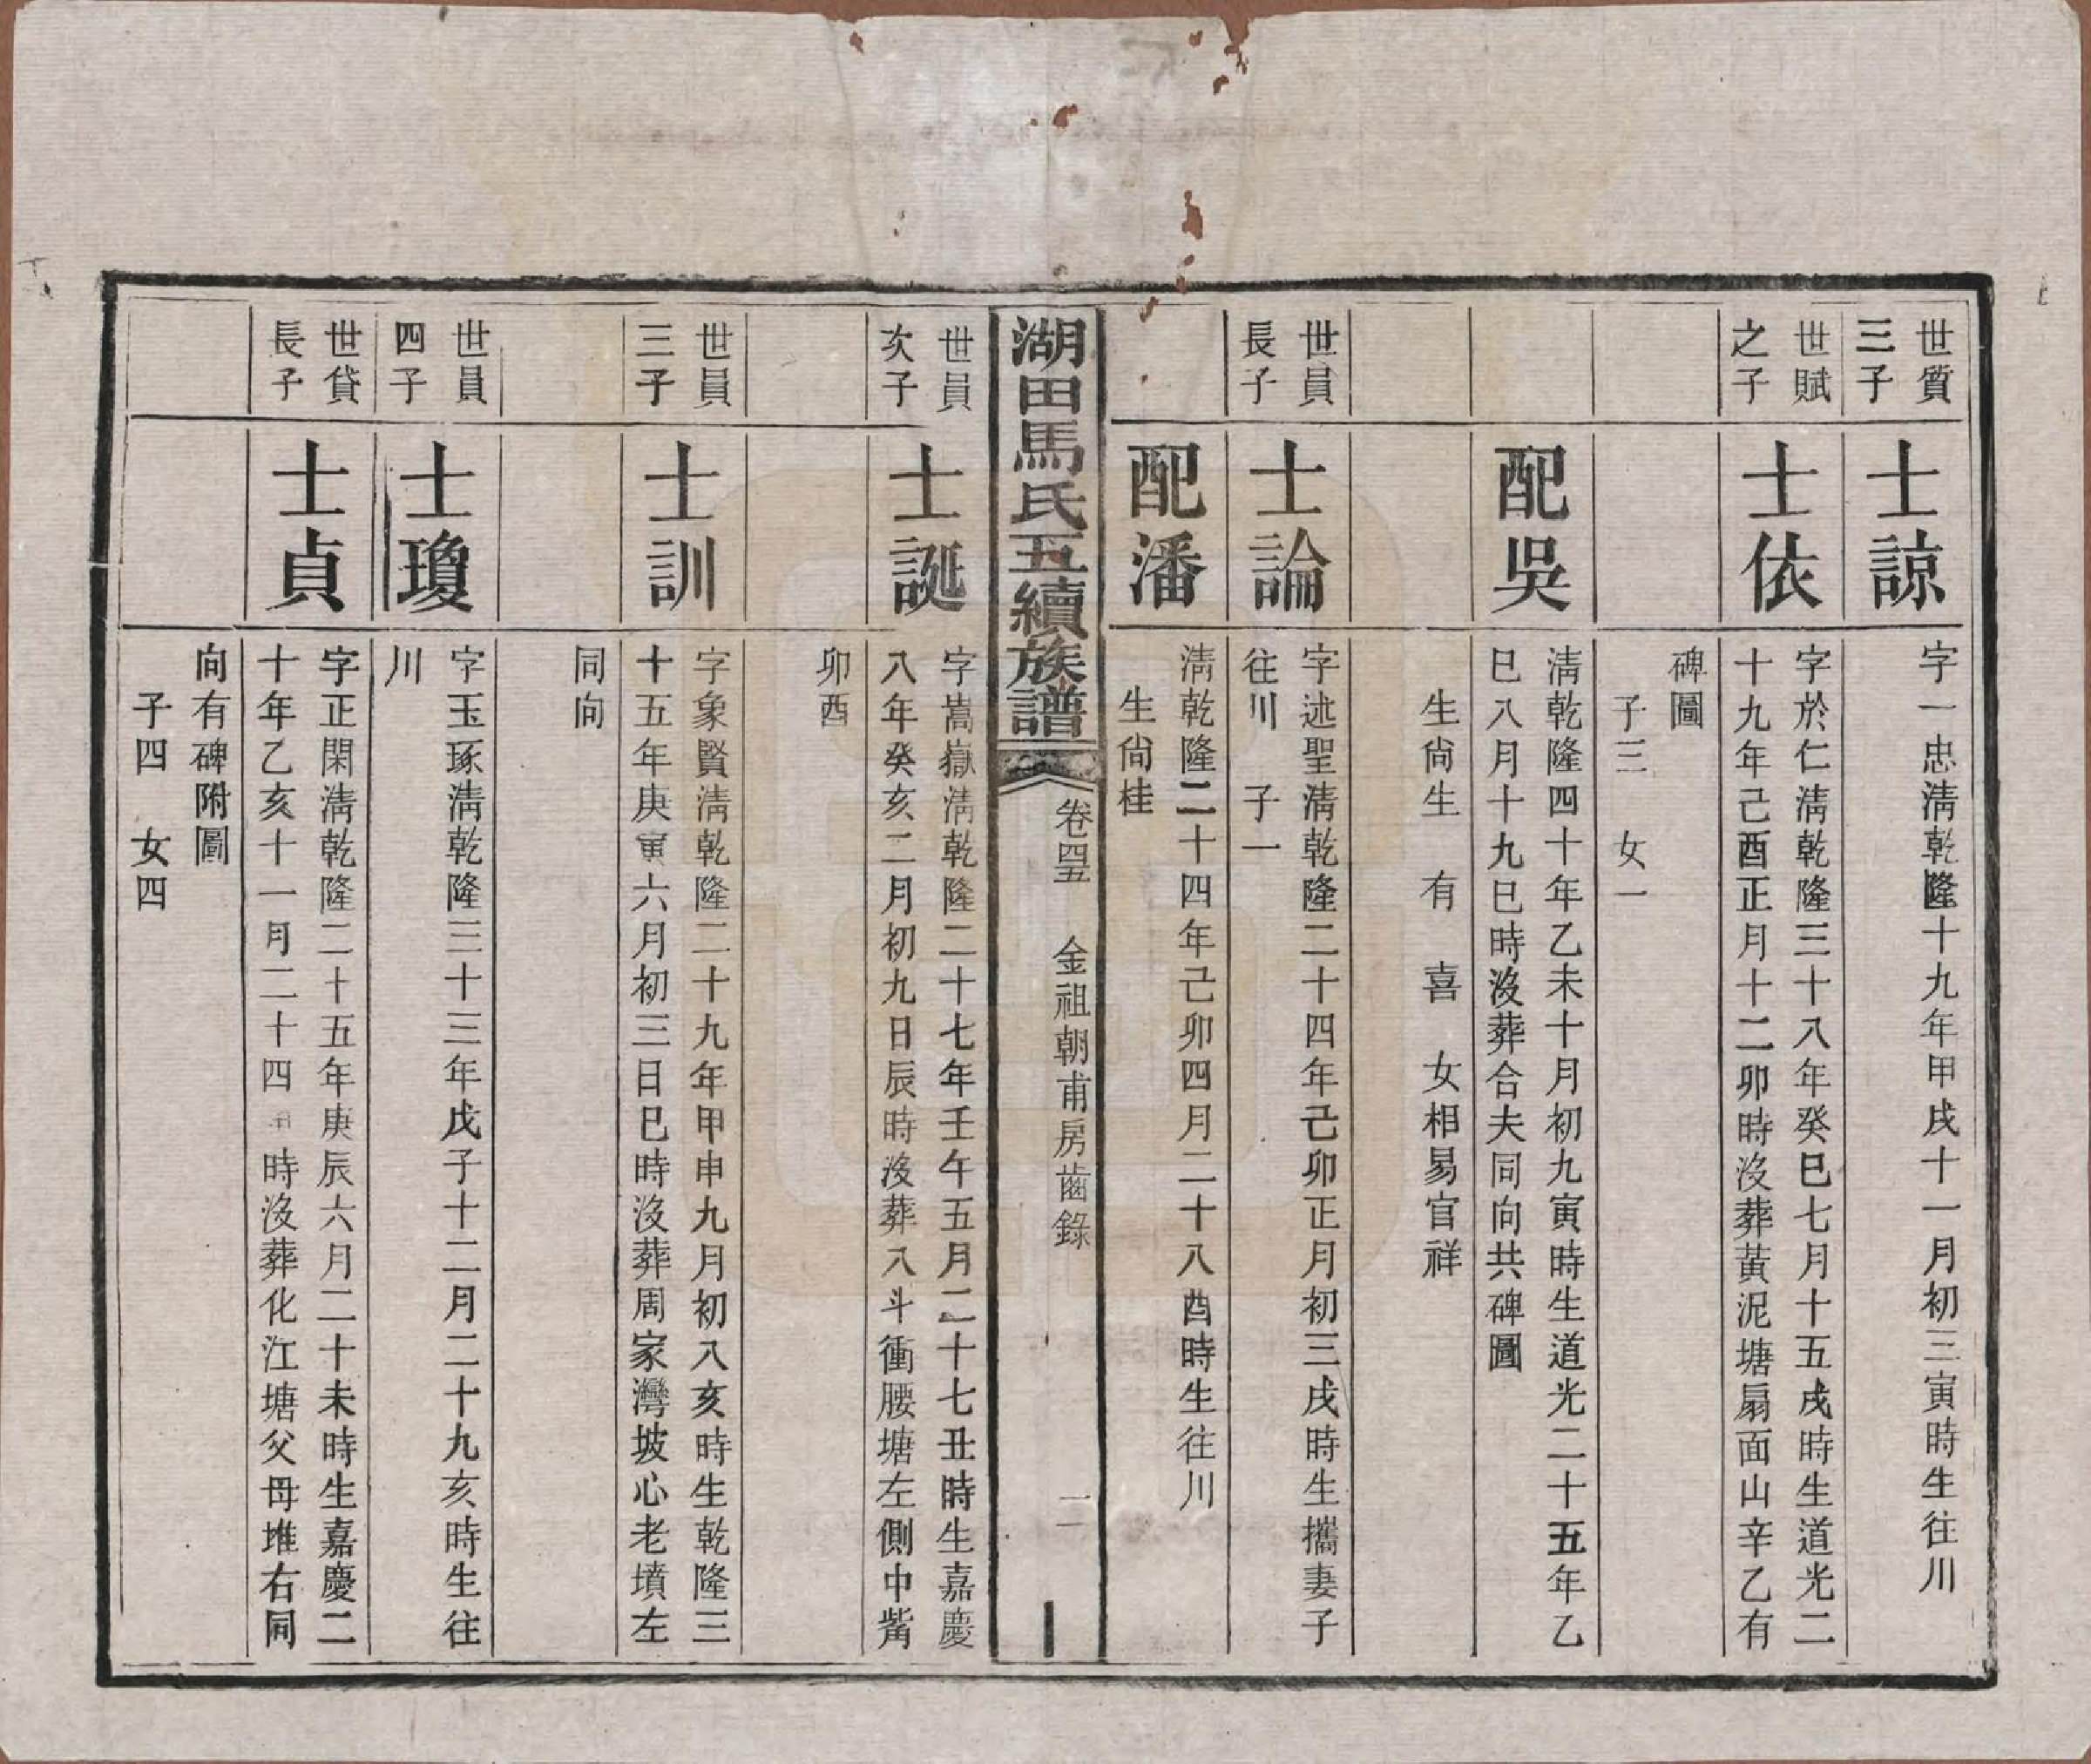 世質
三子
士諒
字一忠淸乾隆十九年甲戌十一月初三寅時生往川
世賦
之子
士依
字於仁淸乾隆三十八年癸巳七月十五戌時生道光二
十九年己酉正月十二卯時沒葬黃泥塘扇面山辛乙有
碑圖
子三 女一
配吳
淸乾隆四十年乙未十月初九寅時生道光二十五年乙
巳八月十九巳時沒葬合夫同向共碑圖
生尙生 有 喜 女相易官祥
世員
長子
士論
字述聖淸乾隆二十四年己卯正月初三戌時生攜妻子
往川 子一
配潘
淸乾隆二十四年己卯四月二十八酉時生往川
生尙桂
湖田馬氏五續族譜
卷四五 金祖朝甫房齒錄
一
世員
次子
士誕
字嵩嶽淸乾隆二十七年壬午五月二十七丑時生嘉慶
八年癸亥二月初九日辰時沒葬八斗衝腰塘左側中觜
卯酉
世員
三子
士訓
字象賢淸乾隆二十九年甲申九月初八亥時生乾隆三
十五年庚寅六月初三日巳時沒葬周家灣坡心老墳左
同向
世員
四子
士瓊
字玉琢淸乾隆三十三年戊子十二月二十九亥時生往
川
世貸
長子
士貞
字正閑淸乾隆二十五年庚辰六月二十未時生嘉慶二
十年乙亥十一月二十四 時沒葬化江塘父母堆右同
向有碑附圖
子四 女四